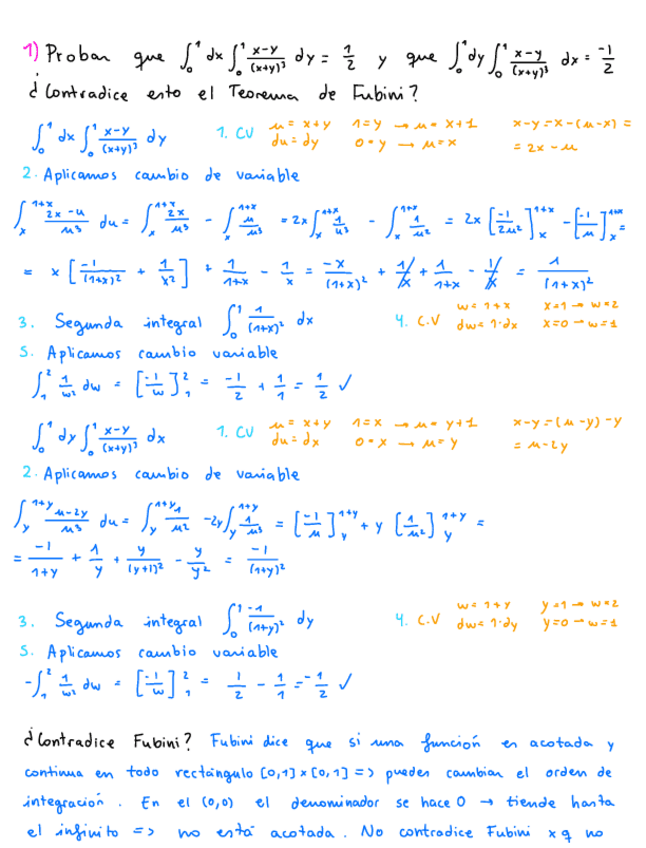 1) Probar que ∫₀¹ dx ∫₀¹ (x-y)/(x+y)³ dy = 1/2 y que ∫₀¹ dy ∫₀¹ (x-y)/(x+y)³ dx = -1/2
¿Contradice esto el Teorema de Fubini?
∫₀¹ dx ∫₀¹ (x-y)/(x+y)³ dy 1. CV u = x+y 1=y → u = x+1 x-y = x-(u-x) =
du = dy 0=y → u=x = 2x - u
2. Aplicamos cambio de variable
∫ₓ¹⁺ˣ (2x-u)/u³ du = ∫ₓ¹⁺ˣ 2x/u³ - ∫ₓ¹⁺ˣ u/u³ = 2x ∫ₓ¹⁺ˣ 1/u³ - ∫ₓ¹⁺ˣ 1/u² = 2x [-1/2u²]ₓ¹⁺ˣ - [-1/u]ₓ¹⁺ˣ =
= x [-1/(1+x)² + 1/x²] + 1/(1+x) - 1/x = -x/(1+x)² + 1/x + 1/(1+x) - 1/x = 1/(1+x)²
3. Segunda integral ∫₀¹ 1/(1+x)² dx 4. C.V w = 1+x x=1 → w=2
dw = 1·dx x=0 → w=1
5. Aplicamos cambio variable
∫₁² 1/w² dw = [-1/w]₁² = -1/2 + 1/1 = 1/2 ✓
∫₀¹ dy ∫₀¹ (x-y)/(x+y)³ dx 1. CV u = x+y 1=x → u = y+1 x-y = (u-y)-y
du = dx 0=x → u=y = u-2y
2. Aplicamos cambio de variable
∫ᵧ¹⁺ʸ (u-2y)/u³ du = ∫ᵧ¹⁺ʸ 1/u² -2y ∫ᵧ¹⁺ʸ 1/u³ = [-1/u]ᵧ¹⁺ʸ + y [1/u²]ᵧ¹⁺ʸ =
= -1/(1+y) + 1/y + y/(y+1)² - y/y² = -1/(1+y)²
3. Segunda integral ∫₀¹ -1/(1+y)² dy 4. C.V w = 1+y y=1 → w=2
dw = 1·dy y=0 → w=1
5. Aplicamos cambio variable
-∫₁² 1/w² dw = [-1/w]₁² = 1/2 - 1/1 = -1/2 ✓
¿Contradice Fubini? Fubini dice que si una función es acotada y
continua en todo rectángulo [0,1]x[0,1] => puedes cambiar el orden de
integración. En el (0,0) el denominador se hace 0 → tiende hasta
el infinito => no está acotada. No contradice Fubini xq no